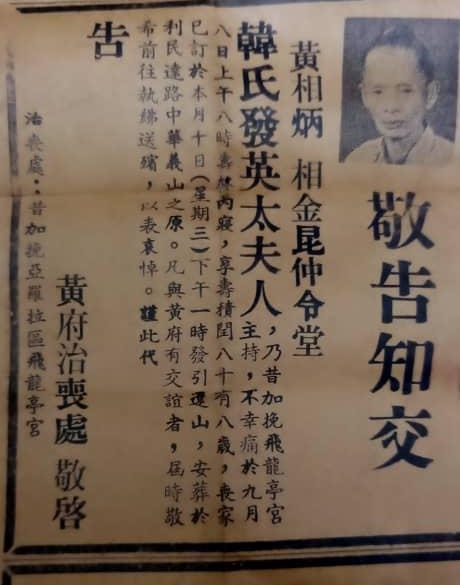 敬告知交
黃相炳 相金昆仲令堂
韓氏發英太夫人，乃昔加挽飛龍亭宮
主持，不幸痛於九月
八日上午八時壽終內寢，享壽積閏八十有八歲，喪家
已訂於本月十日（星期三）下午一時發引還山，安葬於
利民達路中華義山之原。凡與黃府有交誼者，屆時敬
希前往執紼送殯，以表哀悼。謹此代
告
黃府治喪處 敬啓
治喪處：昔加挽亞羅拉區飛龍亭宮